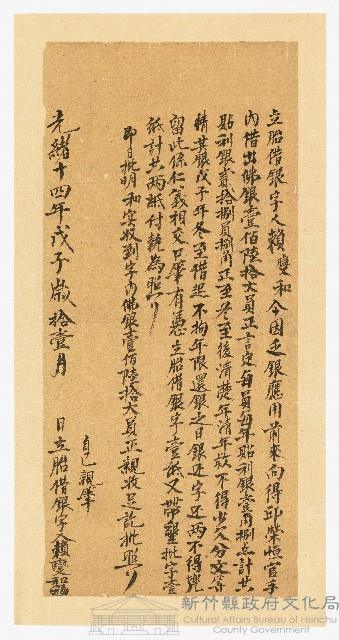 立胎借銀字人賴雙和今因乏銀應用前來向得邱榮恒官手
內借出佛銀壹佰陸拾大員正言定每員每年貼利銀壹角捌点計共
貼利銀貳拾捌員捌角正至冬至後清楚年清年款不得少欠分文等
情其銀戊子年冬至借起不拘年限還銀之日銀还字还两不得兜
留此係仁義相交口筆有憑立胎借銀字壹紙又帶墾批字壹
紙計共两紙付執為照
即日批明和实收到字內佛銀壹佰陸拾大員正親收足訖批照
自己親筆
光緒十四年戊子歲拾壹月 日立胎借銀字人賴雙和
新竹縣政府文化局
Cultural Affairs Bureau of Hsinchu
County Government